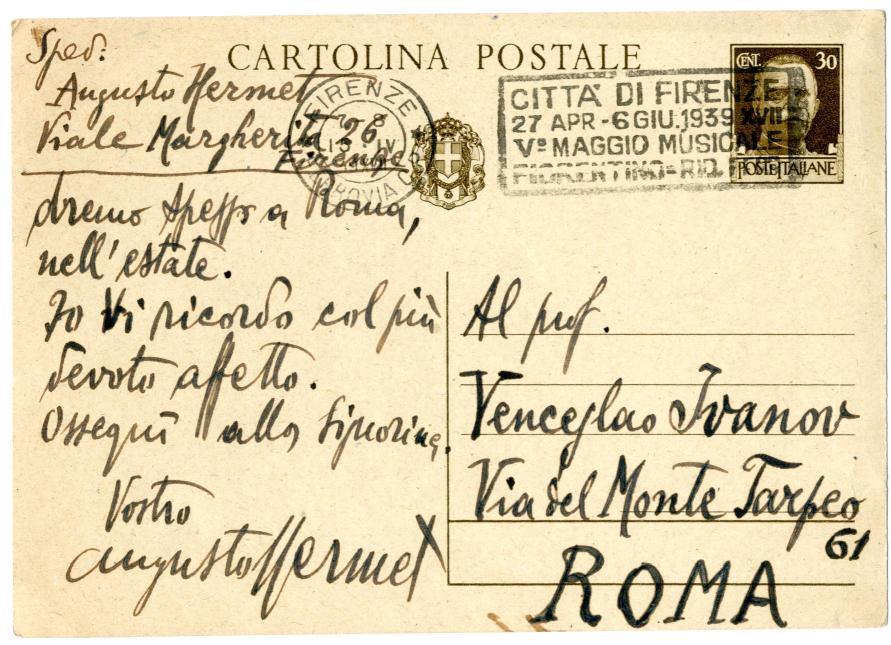 CARTOLINA POSTALE
Sped:
Augusto Hermet
Viale Margherita 26
Firenze
FIRENZE
FERROVIA
CENT. 30
POSTE ITALIANE
CITTÀ DI FIRENZE
27 APR - 6 GIU. 1939 XVII
Vº MAGGIO MUSICALE
FIORENTINO = RID.
dremo spesso a Roma,
nell'estate.
Io Vi ricordo col più
devoto affetto.
Ossequi alla Signorina.
Vostro
Augusto Hermet
Al prof.
Venceslao Ivanov
Via del Monte Tarpeo
61
ROMA